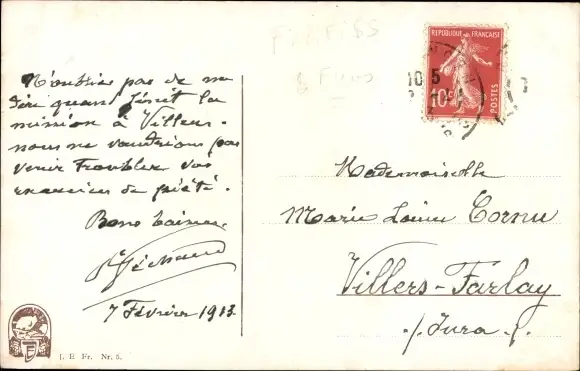 N'oubliez pas de me
dire quand finit la
mission à Villers.
nous ne voudrions pas
venir troubler vos
exercices de piété.
Bons baisers
7 Février 1913.
J. E Fr. Nr. 5.
REPUBLIQUE FRANÇAISE
10c
POSTES
10 5
Mademoiselle
Marie Louise Cornu
Villers-Farlay
Jura